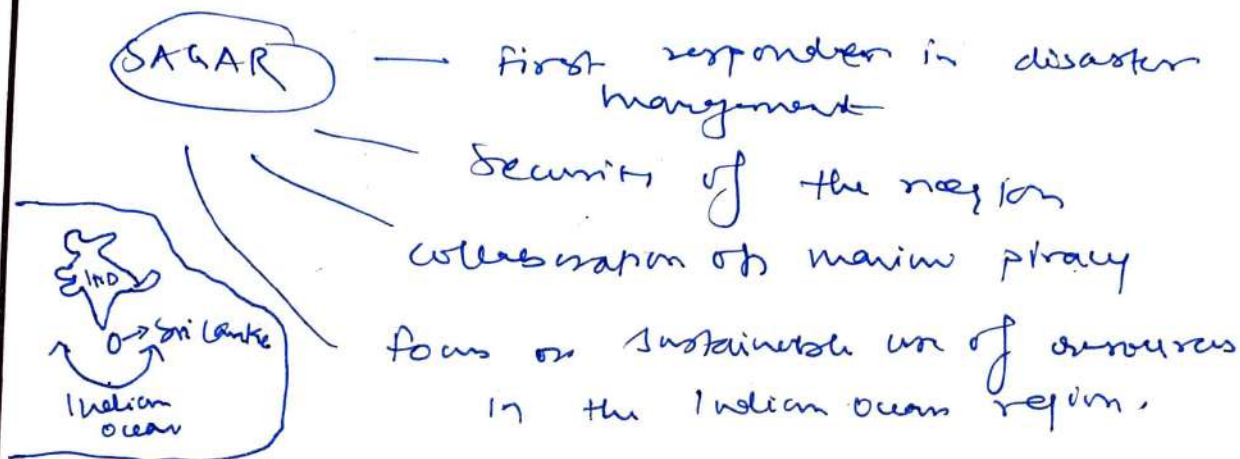 SAGAR — First responder in disaster
management
Security of the region
collaboration on marine piracy
focus on sustainable use of resources
in the Indian ocean region.
IND
O→ Sri Lanka
Indian
ocean